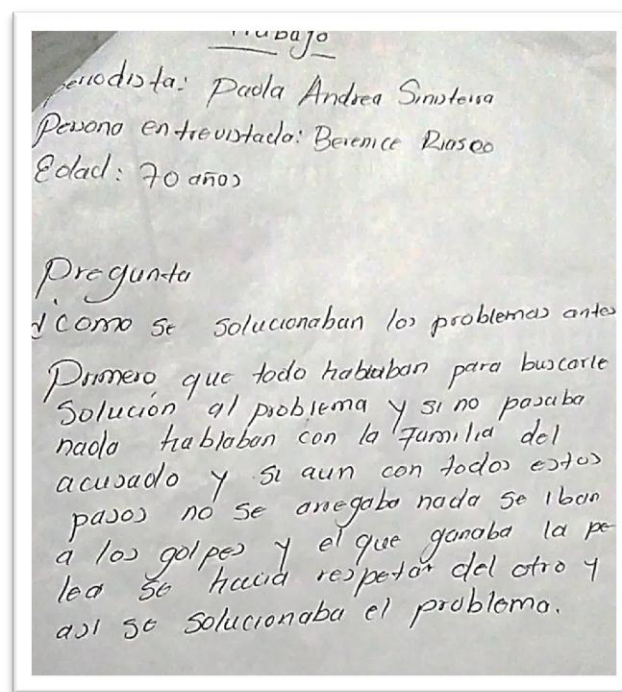 Trabajo
periodista: Paola Andrea Sinisterra
Persona entrevistada: Berenice Riasco
Edad: 70 años
Pregunta
¿como se solucionaban los problemas antes
Primero que todo hablaban para buscarle
Solución al problema y si no pasaba
nada hablaban con la familia del
acusado y si aun con todos estos
pasos no se arregaba nada se iban
a los golpes y el que ganaba la pe
lea se hacia respetar del otro y
asi se solucionaba el problema.